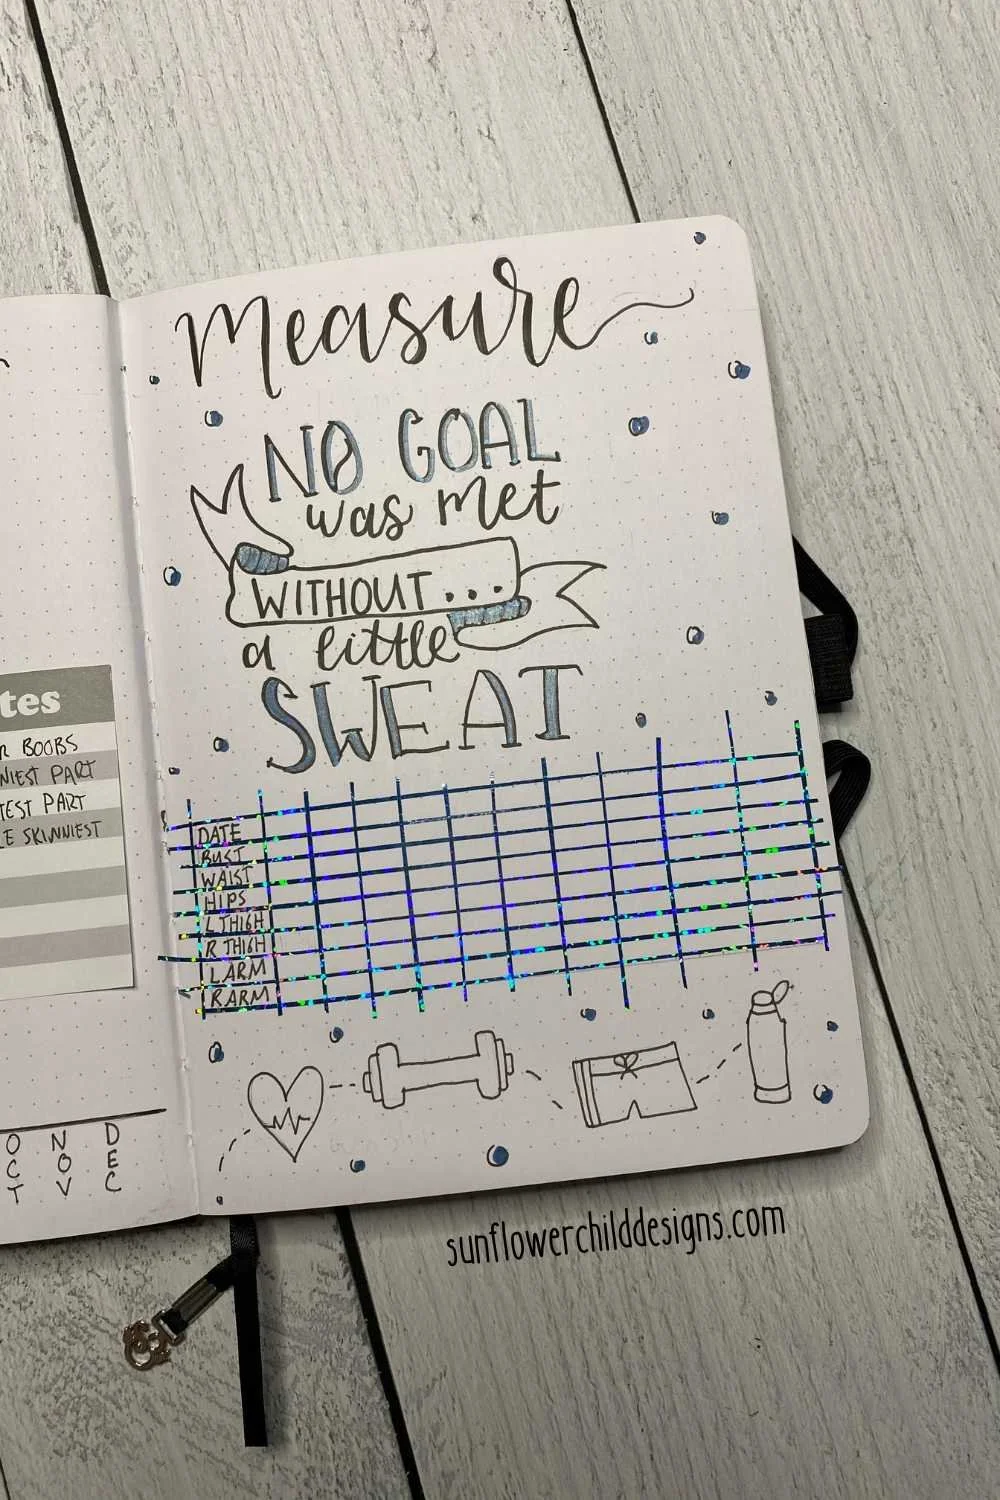 tes
R BOOBS
NIEST PART
TEST PART
LE SKINNIEST
OCT NOV DEC
Measure
NO GOAL
was met
WITHOUT...
a little
SWEAT
DATE
BUST
WAIST
HIPS
L THIGH
R THIGH
L ARM
R ARM
sunflowerchilddesigns.com